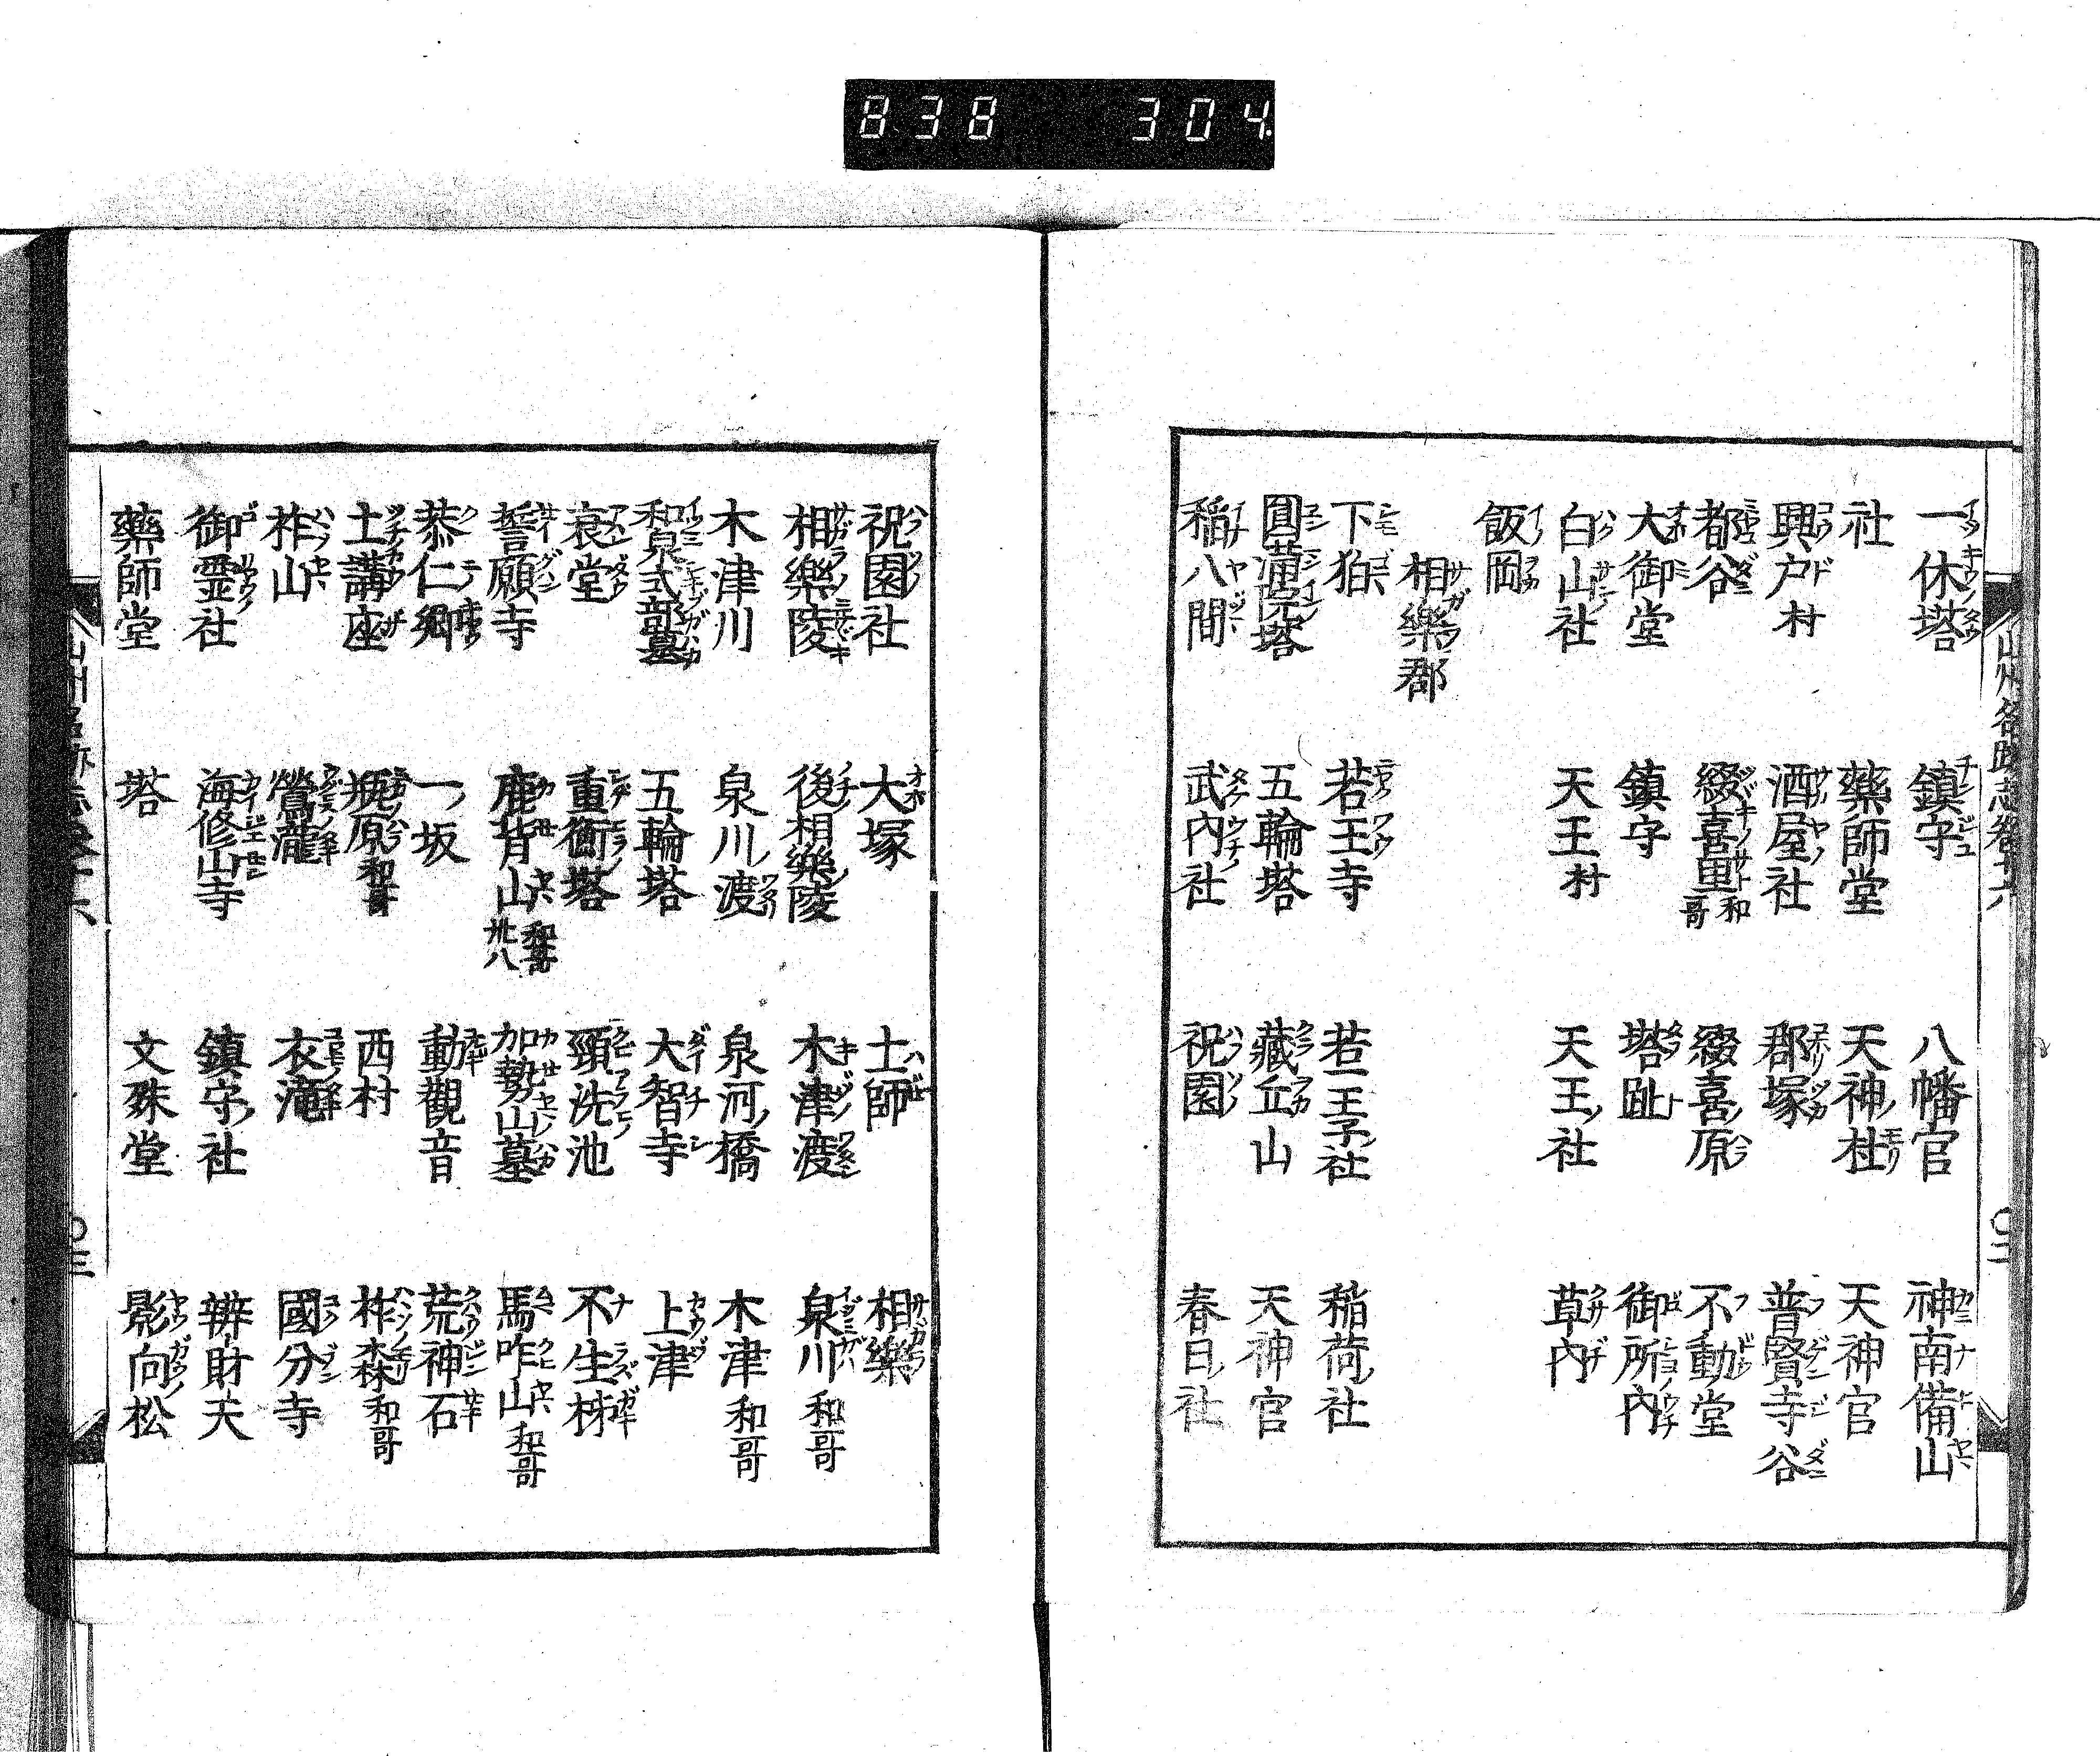 838 304
一休塔 鎮守 八幡宮 神南備山
社 藥師堂 天神杜 天神宮
興戸村 酒屋社 郡塚 普賢寺谷
都谷 綴喜里 和哥 綴喜原 不動堂
大御堂 鎮守 塔趾 御所内
白山社 天王村 天王社 草内
飯岡
相樂郡
下狛 若王寺 若王子社 稲荷社
圓満院塔 五輪塔 藏丘山 天神宮
稲八間 武内社 祝園 春日社
祝園社 大塚 土師 相樂
相樂陵 後相樂陵 木津渡 泉川 和哥
木津川 泉川渡 泉河橋 木津 和哥
和泉式部墓 五輪塔 大智寺 上津
哀堂 重衡塔 頸洗池 不生柿
誓願寺 鹿背山 和哥 卅八 加勢山墓 馬咋山 和哥
恭仁郷 一坂 動觀音 荒神石
土講座 瓶原 和哥 西村 柞森 和哥
柞山 鶯瀧 衣滝 國分寺
御霊社 海修山寺 鎮守社 辨財天
藥師堂 塔 文殊堂 影向松